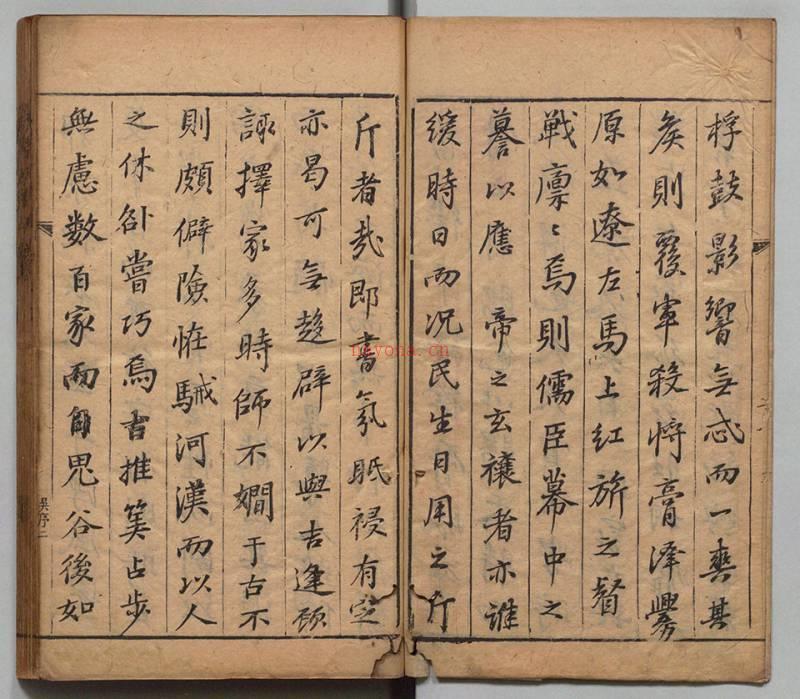 桴鼓影響無忒而一爽其
矦則覆軍殺將膏澤釁
原如遼左馬上紅旂之督
戰凛〻焉則儒臣幕中之
謩以應 帝之玄禳者亦誰
緩時日而况民生日用之斤
斤者哉即書氛眂祲有定
亦曷可無趨辟以與吉逢顾
諏擇家多時師不嫺于古不
則頗僻險恠駴河漢而以人
之休咎嘗巧焉 推筭占步
無慮数百家而 鬼谷後如
吳序二
nayona.cn